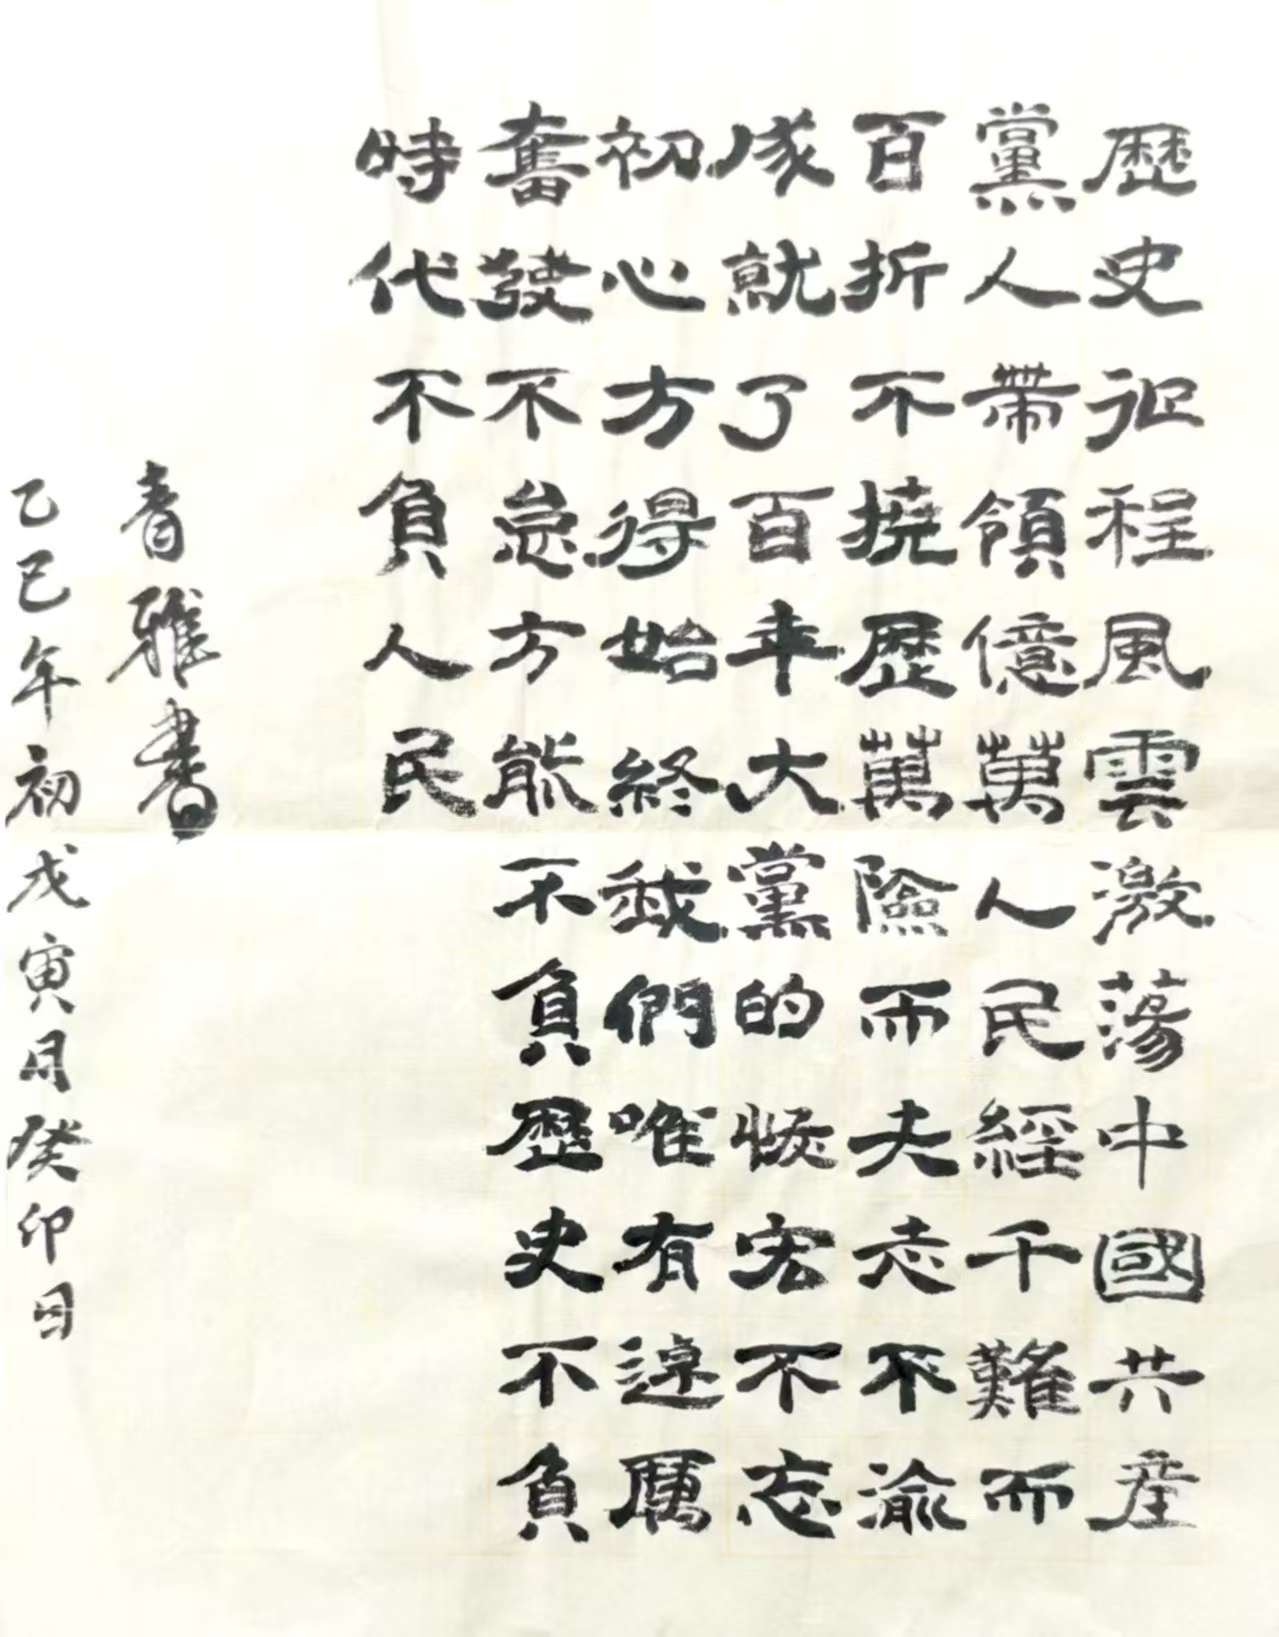 歷史征程風雲激蕩中國共産
黨人帶領億萬人民經千難而
百折不撓歷萬險而矢志不渝
成就了百年大黨的恢宏不忘
初心方得始終我們唯有逴厲
奮發不怠方能不負歷史不負
時代不負人民
春雅書
乙巳年初戊寅月癸卯日